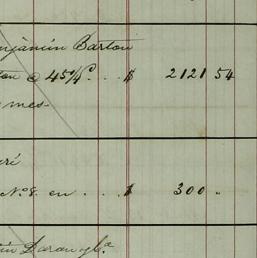 njamin Barton
ton @ 45¼ c. . . $ 2121 54
mes
N.o 8. en . . . . $ 300 "